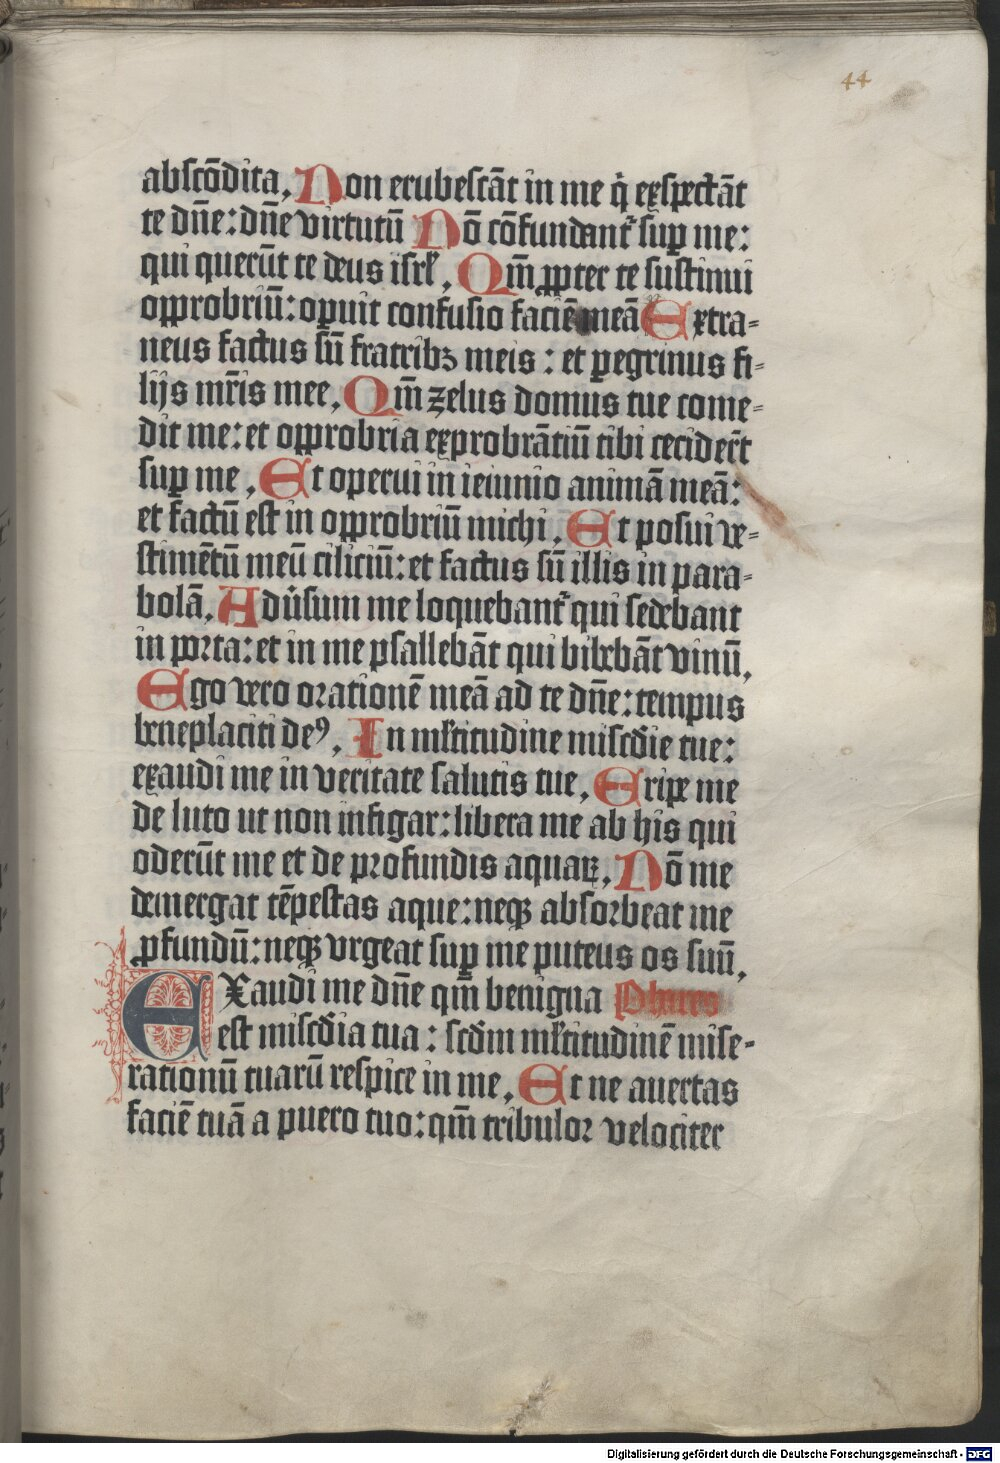 44
abscōdita, Non erubescāt in me q̇ exspectāt
te dn̄e: dn̄e virtutū Nō cōfundant᷑ sup̱ me:
qui querūt te deus isrl̄, Qm̄ ꝓpter te sustinui
opprobriū: op̱uit confusio faciē meā Extra⸗
neus factus sū fratribꝫ meis: et p̱egrinus fi⸗
lijs mr̄is mee, Qm̄ zelus domus tue come⸗
dit me: et opprobria exprobrātiū tibi cecidert̄
sup̱ me, Et operui in ieiunio animā meā:
et factū est in opprobriū michi, Et posui ve⸗
stimētū meū ciliciū: et factus sū illis in para⸗
bolā, Adu̇sum me loquebant᷑ qui sedebant
in porta: et in me psallebāt qui bibebāt vinū,
Ego vero orationē meā ad te dn̄e: tempus
beneplaciti deꝰ, In ml̄titudine misc̄die tue:
exaudi me in veritate salutis tue, Eripe me
de luto ut non infigar: libera me ab his qui
oderūt me et de profundis aquaꝝ, Nō me
demergat tēpestas aque: neqꝫ absorbeat me
ꝓfundū: neqꝫ vrgeat sup̱ me puteus os suū,
EXaudi me dn̄e qm̄ benigna
est misc̄dia tua: scd̄m ml̄titudinē mise⸗
rationū tuarū respice in me, Et ne auertas
faciē tuā a puero tuo: qm̄ tribulor velociter
Digitalisierung gefördert durch die Deutsche Forschungsgemeinschaft - DFG